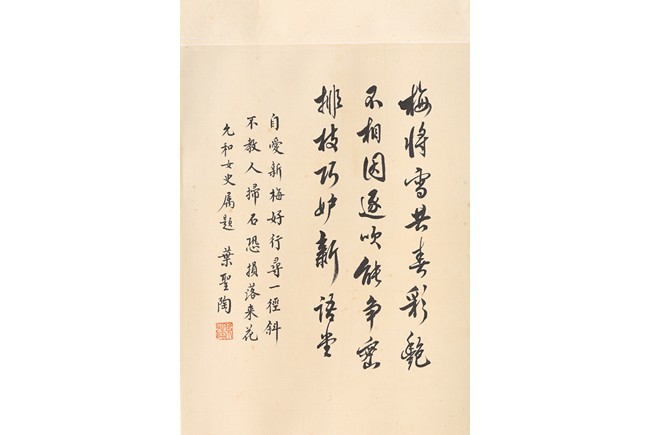 梅将雪共春彩艷
不相因逐吹能争密
排枝巧妒新 語堂
自愛新梅好行尋一徑斜
不教人掃石恐損落来花
允和女史属題 葉聖陶